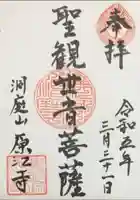 奉拝
令和五年
三月三十一日
聖観世音菩薩
洞庭山
原江寺